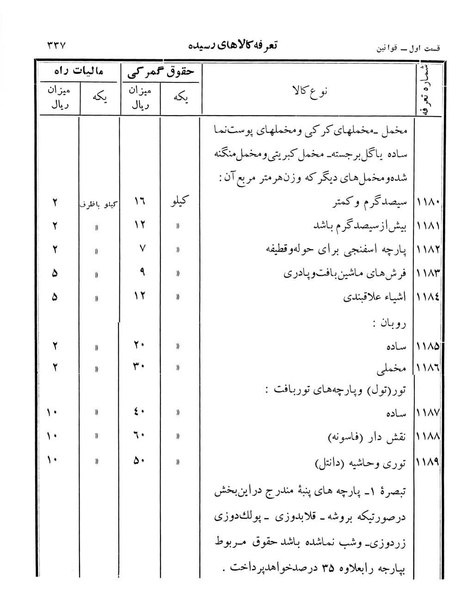 قسمت اول ــ قوانین تعرفه کالاهای رسیده ۳۳۷
شماره تعرفه نوع کالا حقوق گمرکی مالیات راه
یکه میزان ریال یکه میزان ریال
مخمل ــ مخملهای کرکی و مخملهای پوست نما
ساده یا گل برجسته ــ مخمل کبریتی و مخمل منگنه
شده و مخمل های دیگر که وزن هر متر مربع آن :
۱۱۸۰ سیصد گرم و کمتر کیلو ۱۶ کیلو با ظرف ۲
۱۱۸۱ بیش از سیصد گرم باشد » ۱۲ » ۲
۱۱۸۲ پارچه اسفنجی برای حوله و قطیفه » ۷ » ۲
۱۱۸۳ فرش های ماشین بافت و پادری » ۹ » ۵
۱۱۸٤ اشیاء علاقبندی » ۱۲ » ۵
روبان :
۱۱۸۵ ساده » ۲۰ » ۲
۱۱۸۶ مخملی » ۳۰ » ۲
تور (تول) و پارچه های تور بافت :
۱۱۸۷ ساده » ٤۰ » ۱۰
۱۱۸۸ نقش دار (فاسونه) » ۶۰ » ۱۰
۱۱۸۹ توری و حاشیه (دانتل) » ۵۰ » ۱۰
تبصرۀ ۱ ــ پارچه های پنبۀ مندرج در این بخش
در صورتیکه بروشه ــ قلابدوزی ــ پولك دوزی
زردوزی ــ وشب نما شده باشد حقوق مربوط
بپارچه را بعلاوه ۳۵ درصد خواهد پرداخت .